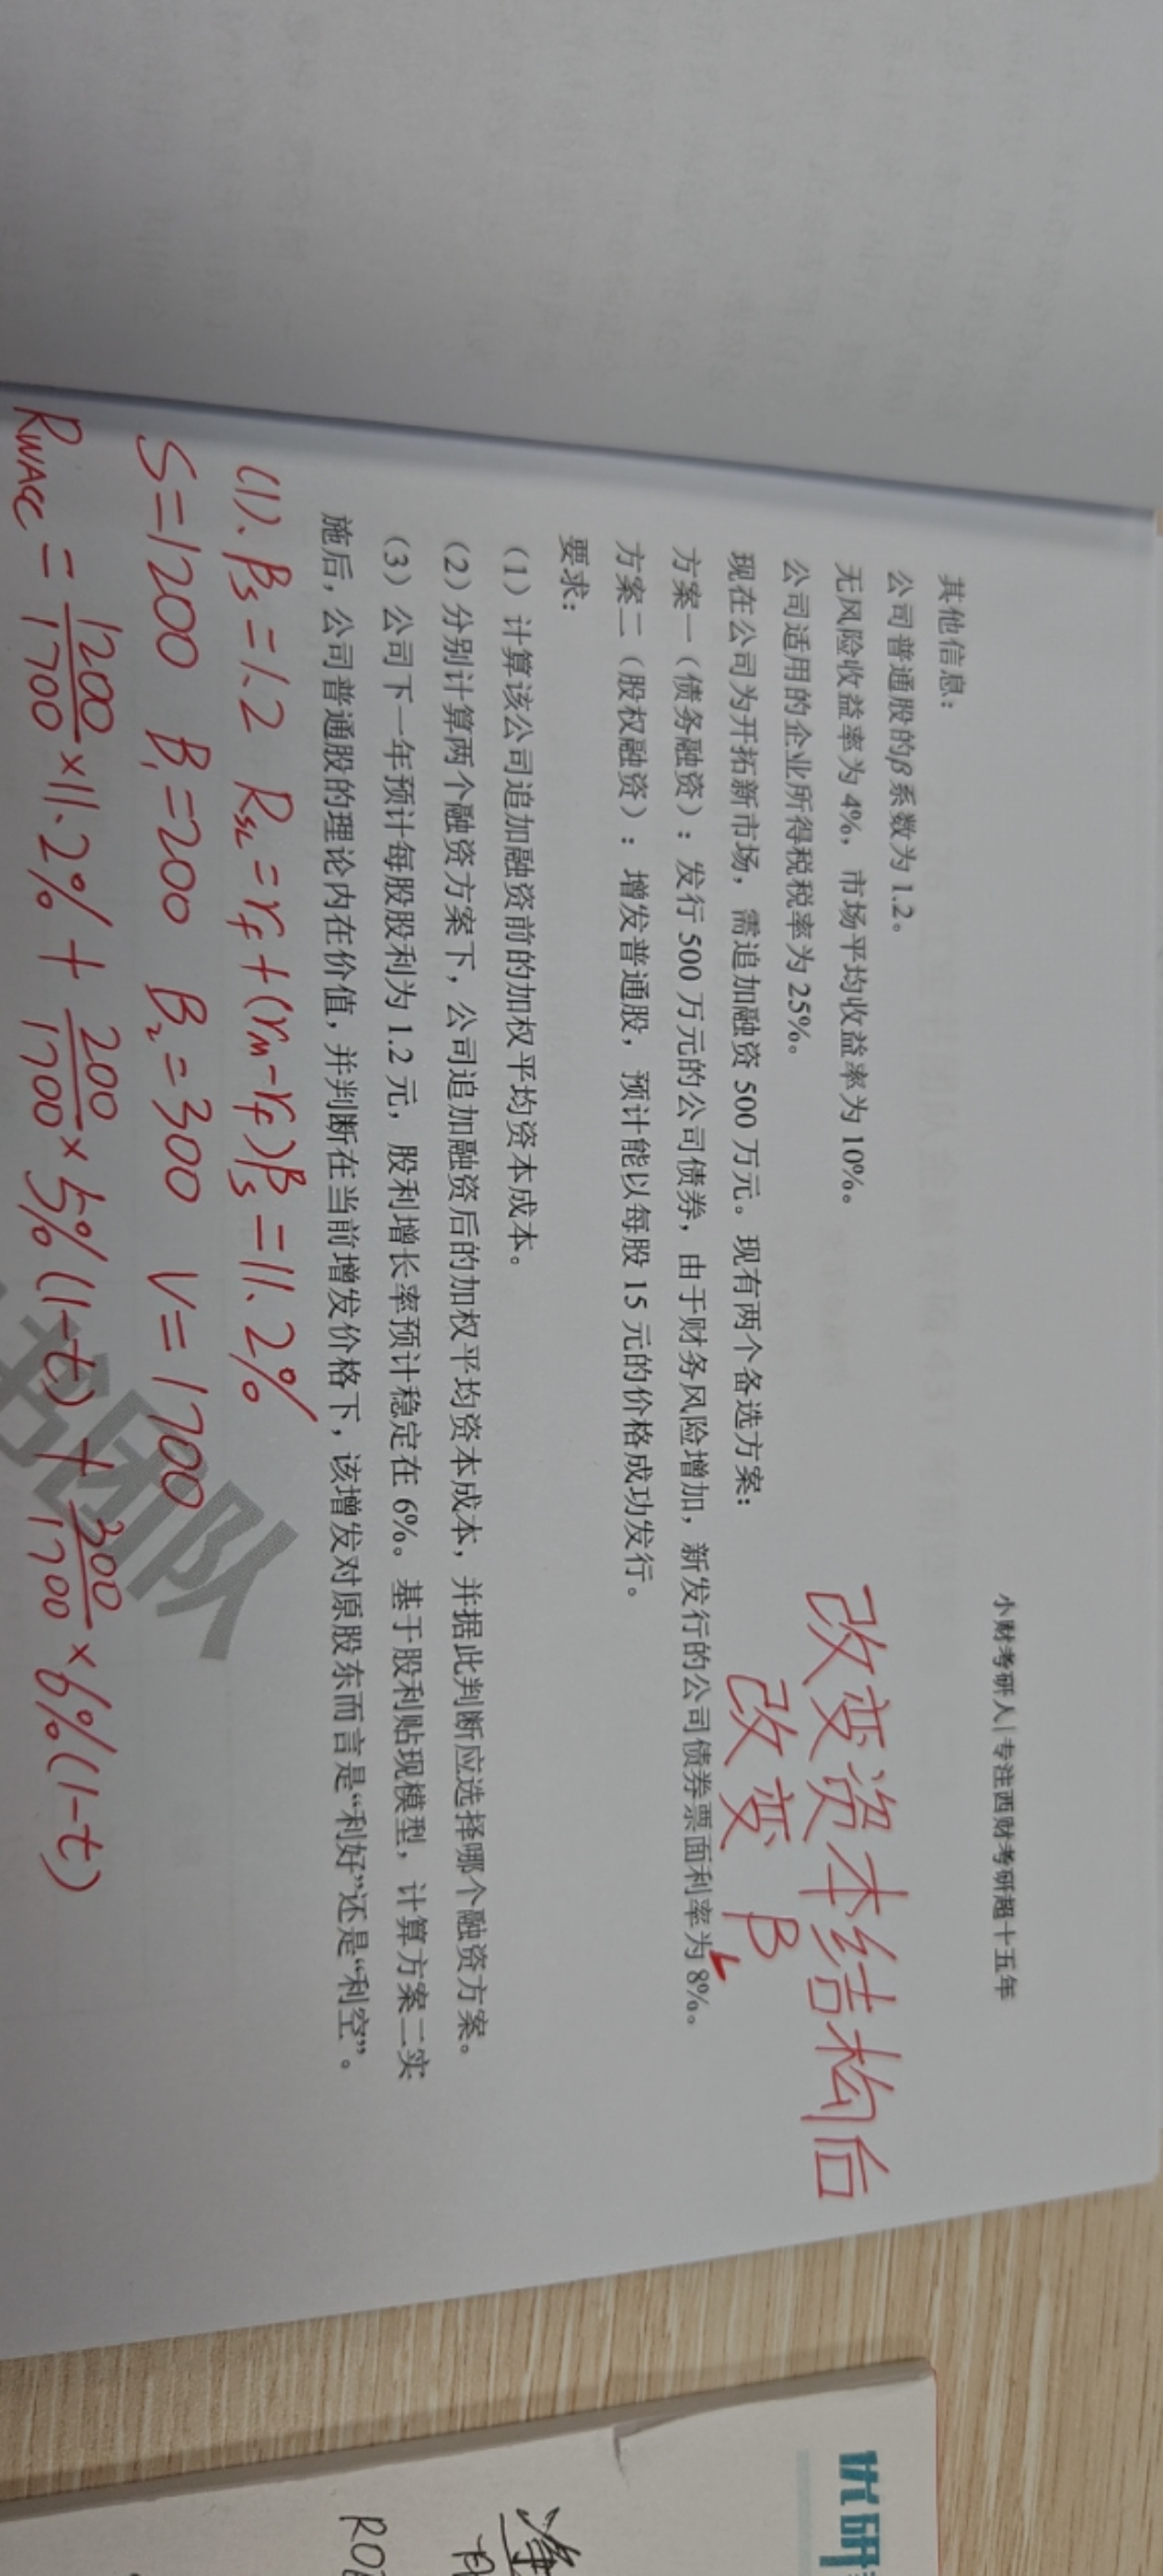 小财考研人|专注西财考研超十五年
其他信息：
公司普通股的β系数为 1.2。
无风险收益率为 4%，市场平均收益率为 10%。
公司适用的企业所得税税率为 25%。
改变资本结构后
改变 βL
现在公司为开拓新市场，需追加融资 500 万元。现有两个备选方案：
方案一（债务融资）：发行 500 万元的公司债券，由于财务风险增加，新发行的公司债券票面利率为 8%。
方案二（股权融资）：增发普通股，预计能以每股 15 元的价格成功发行。
要求：
（1）计算该公司追加融资前的加权平均资本成本。
（2）分别计算两个融资方案下，公司追加融资后的加权平均资本成本，并据此判断应选择哪个融资方案。
（3）公司下一年预计每股股利为 1.2 元，股利增长率预计稳定在 6%。基于股利贴现模型，计算方案二实
施后，公司普通股的理论内在价值，并判断在当前增发价格下，该增发对原股东而言是“利好”还是“利空”。
(1)、βs=1.2 RSL=rf+(rm-rf)βs=11.2%
S=1200 B1=200 B2=300 V=1700
RWACC=1200/1700×11.2%+200/1700×5%(1-t)+300/1700×6%(1-t)
书团队
优研
净
ROE